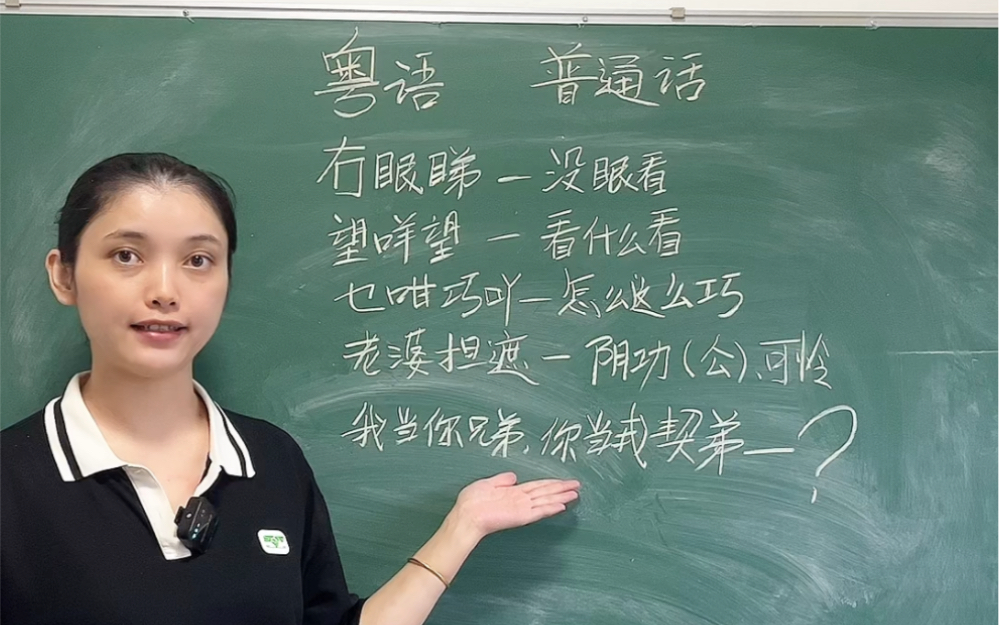 粤语 普通话
冇眼睇—没眼看
望咩望—看什么看
乜咁巧吖—怎么这么巧
老婆担遮—阴功(公)、可怜
我当你兄弟,你当我契弟—?